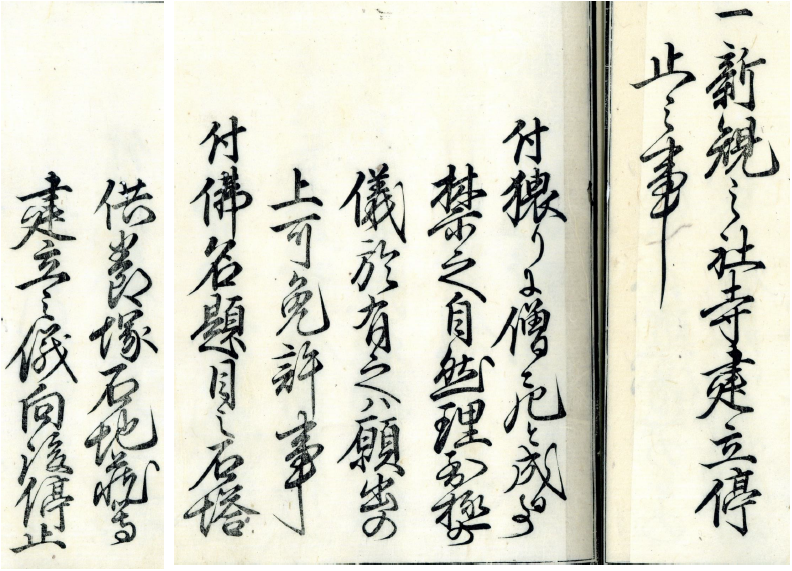 一新規之社寺建立停
止之事
付猥りニ僧尼と成事
禁之自然理至極の
儀於有之ハ願出の
上可免許事
付佛名題目之石塔
供養塚石地蔵等
建立之儀向後停止